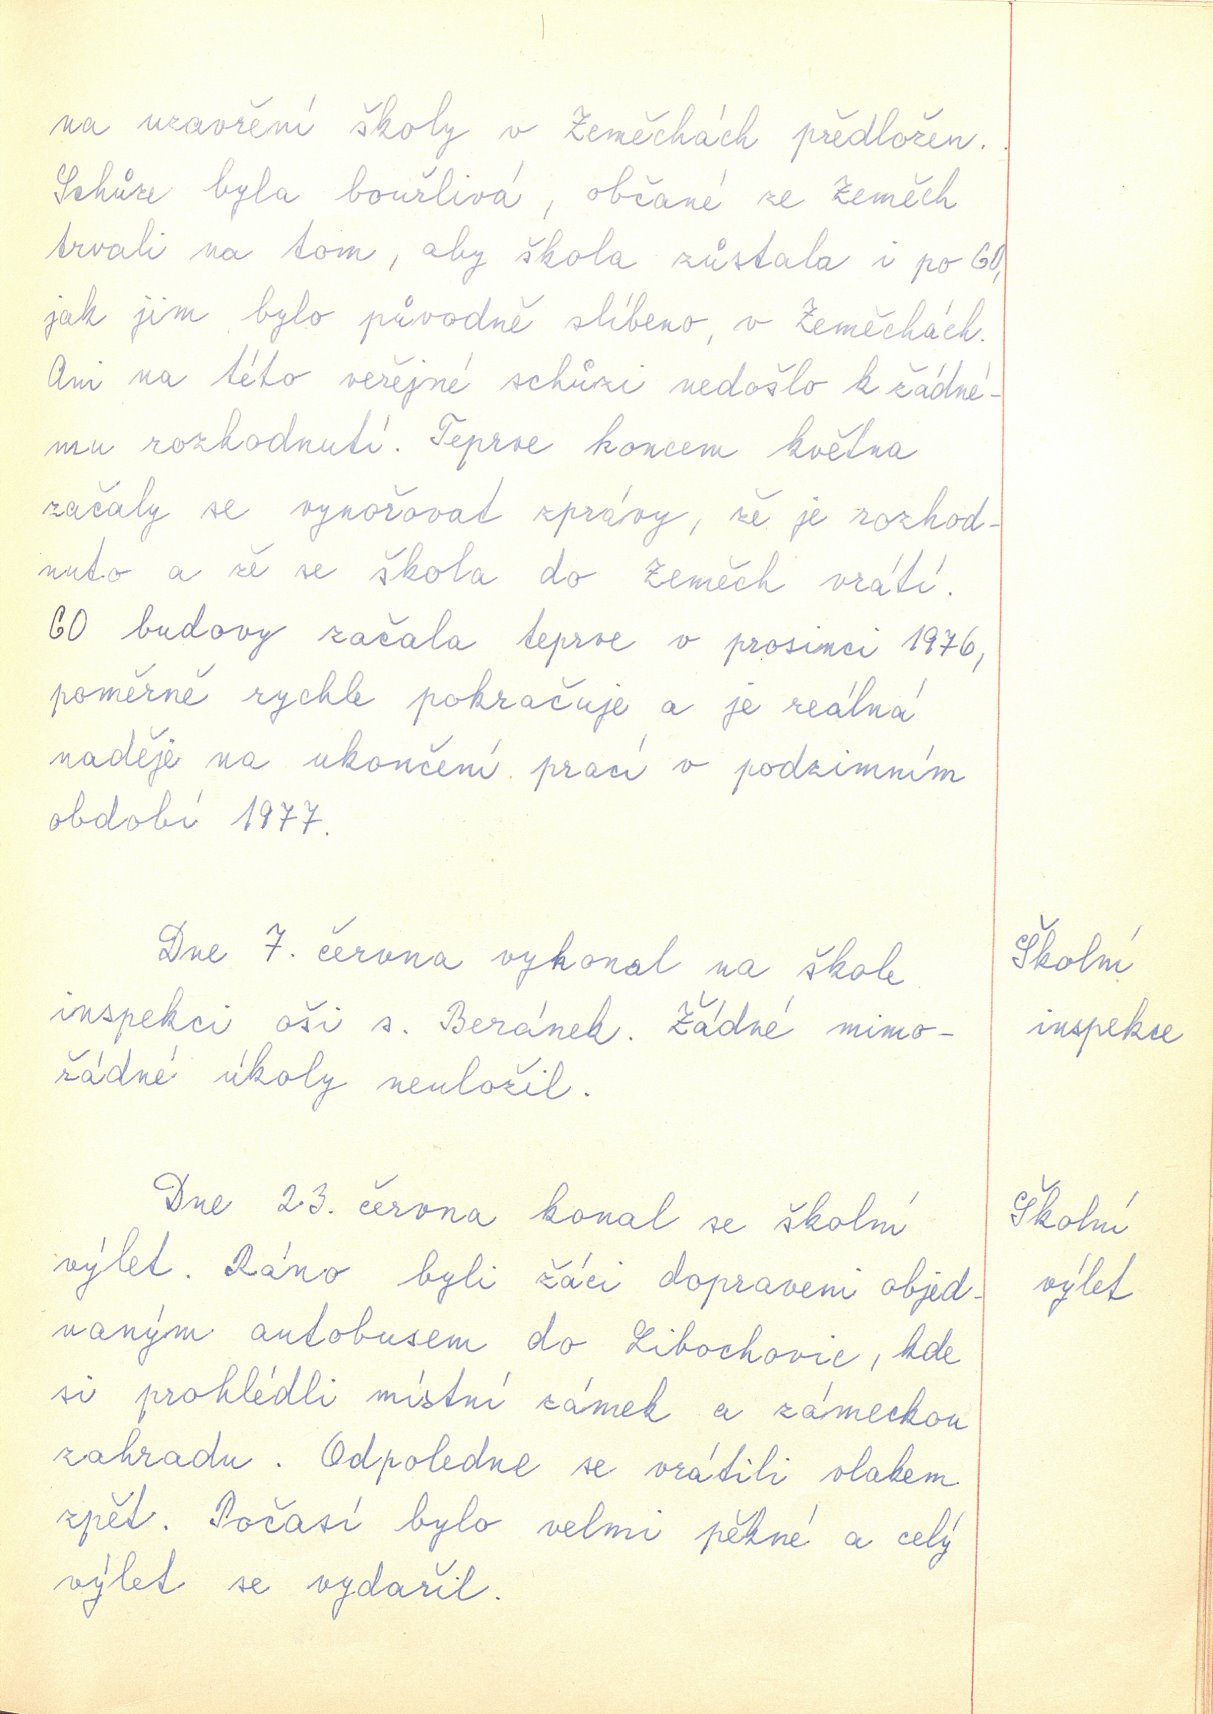 na uzavření školy v Zeměchách předložen.
Schůze byla bouřlivá, občané ze Zeměch
trvali na tom, aby škola zůstala i po GO,
jak jim bylo původně slíbeno, v Zeměchách.
Ani na této veřejné schůzi nedošlo k žádné-
mu rozhodnutí. Teprve koncem května
začaly se vynořovat zprávy, že je rozhod-
nuto a že se škola do Zeměch vrátí.
GO budovy začala teprve v prosinci 1976,
poměrně rychle pokračuje a je reálná
naděje na ukončení prací v podzimním
období 1977.
Dne 7. června vykonal na škole
Školní
inspekci oši s. Beránek. Žádné mimo-
inspekce
řádné úkoly neuložil.
Dne 23. června konal se školní
Školní
výlet. Ráno byli žáci dopraveni objed-
výlet
naným autobusem do Libochovic, kde
si prohlédli místní zámek a zámeckou
zahradu. Odpoledne se vrátili vlakem
zpět. Počasí bylo velmi pěkné a celý
výlet se vydařil.